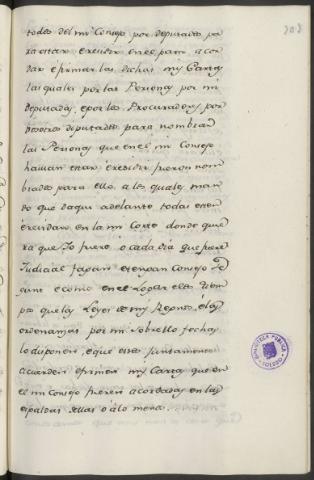 todos del mi Consejo por deputados pa
ra estar e residir en el para acor
dar e firmar las dichas mis Cartas
las quales por las Personas por mi
deputadas, e por los Procuradores por
vosotros deputados para nombrar
las Personas que en el mi Consejo
havian estar, e residir fueron nom
brados para ello, a los quales man
do que daqui adelante todos esten e
residan en la mi Corte donde quie
ra que Yo fuere, o cada dia que fuere
Judicial fagan e tengan Consejo se
gunt e como en el Logar e los tiem
pos que las Leyes de mis Regnos, e las
ordenanzas por mi sobrello fechas
lo disponen, e que estos juntamente
acuerden e firmen mis Cartas que en
el mi Consejo fueren acordadas en las
espaldas dellas o a lo menos
BIBLIOTECA PUBLICA
TOLEDO